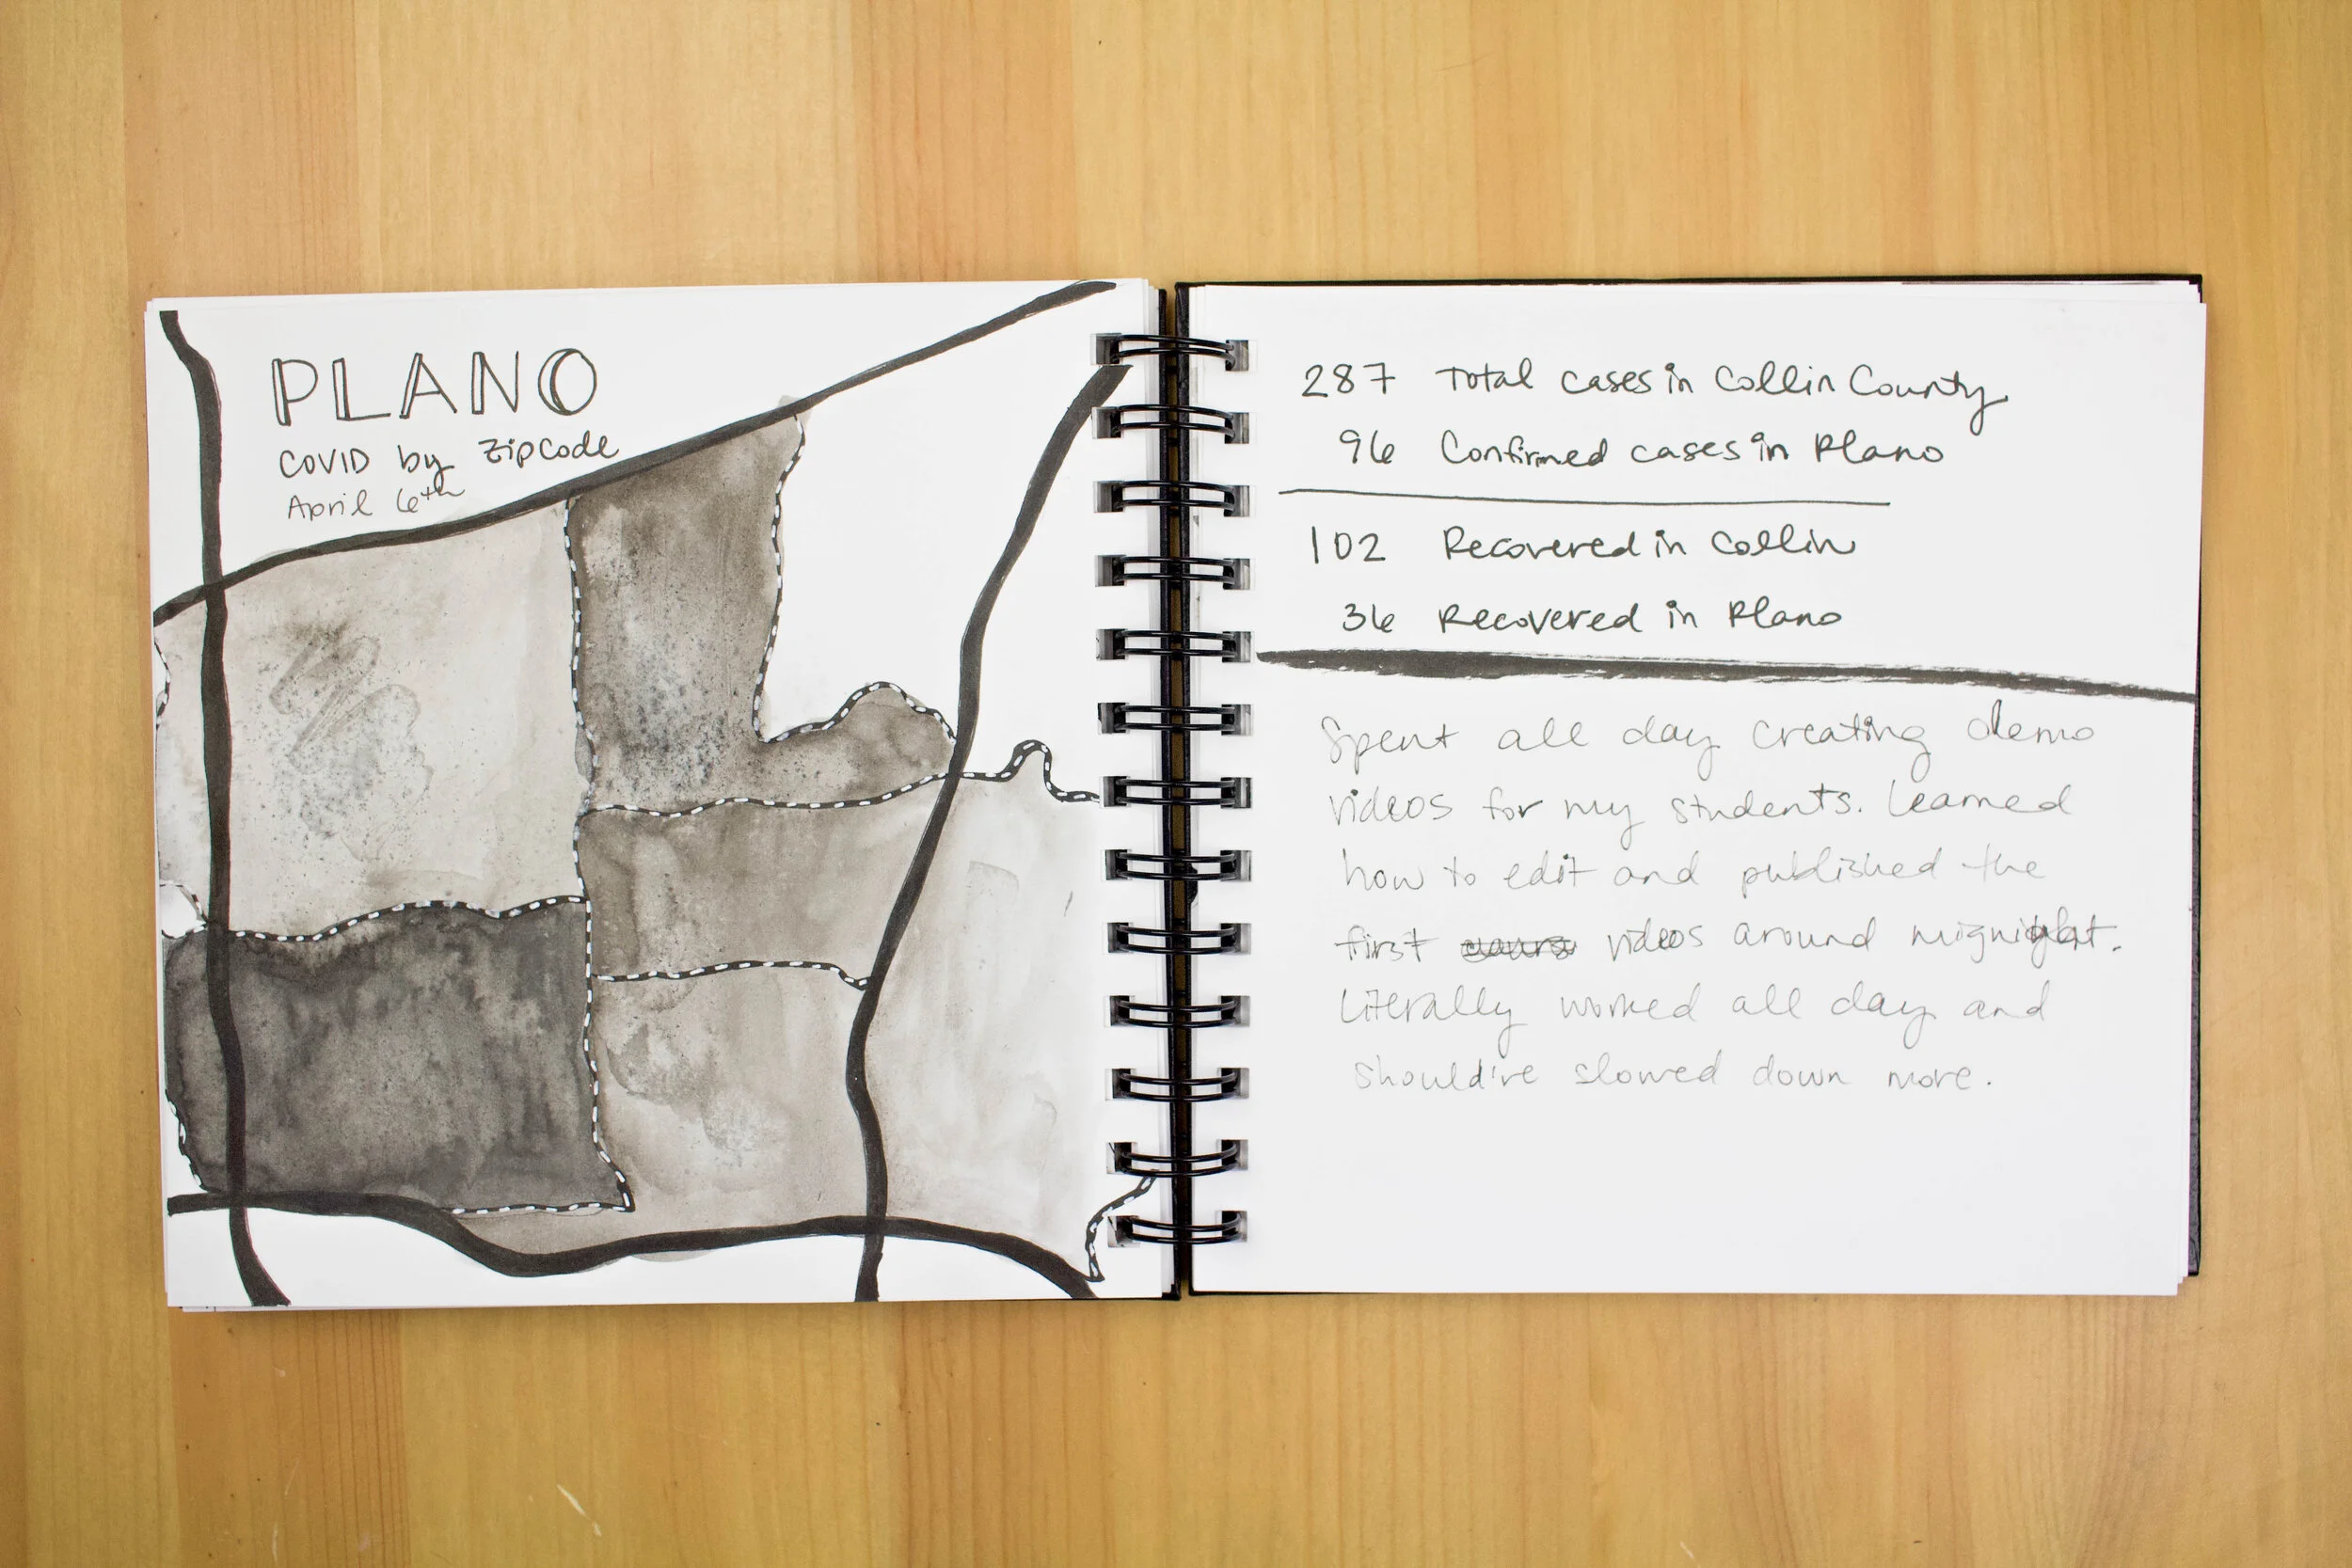 PLANO
COVID by Zipcode
April 6th
287 Total cases in Collin County
96 Confirmed cases in Plano
102 Recovered in Collin
36 Recovered in Plano
Spent all day creating demo
videos for my students. Learned
how to edit and published the
first videos around mignight.
Literally worked all day and
should've slowed down more.